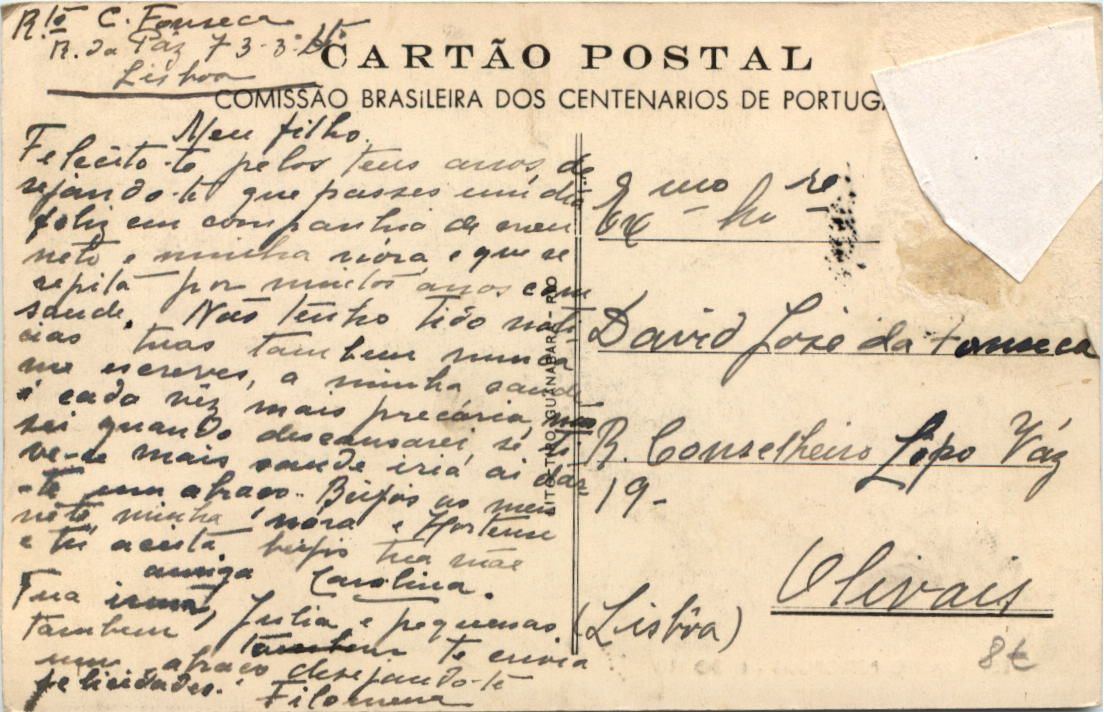 R.te C. Fonseca
R. da Paz 73-3º Dtº
Lisboa
CARTÃO POSTAL
COMISSÃO BRASiLEIRA DOS CENTENARIOS DE PORTUGA
Meu filho.
Felecito-te pelos teus anos, de
sejando-te que passes um dia
feliz em companhia de meu
neto e minha nóra, e que se
repitã por muitos anos com
saude. Não tenho tido noti
cias tuas tambem nunca
me escreves, a minha saude
é cada vêz mais precária, não
sei quando descansarei, se ti
ve-se mais saude iriá ai dar
-te um abraço. Beijos ao meu
néto, minha nóra e Hortense
e tú aceita beijos tua mãe
amiga Carolina.
Tua irmã, Julia e pequenas.
tambem tambem te envia
um abraço desejando-te
felicidades. Filomena
LITO-TIPO GUANABARA - RIO
Exmo Snr
David José da Fonseca
R. Conselheiro Lôpo Váz
19-
Olivais
(Lisbôa)
8€